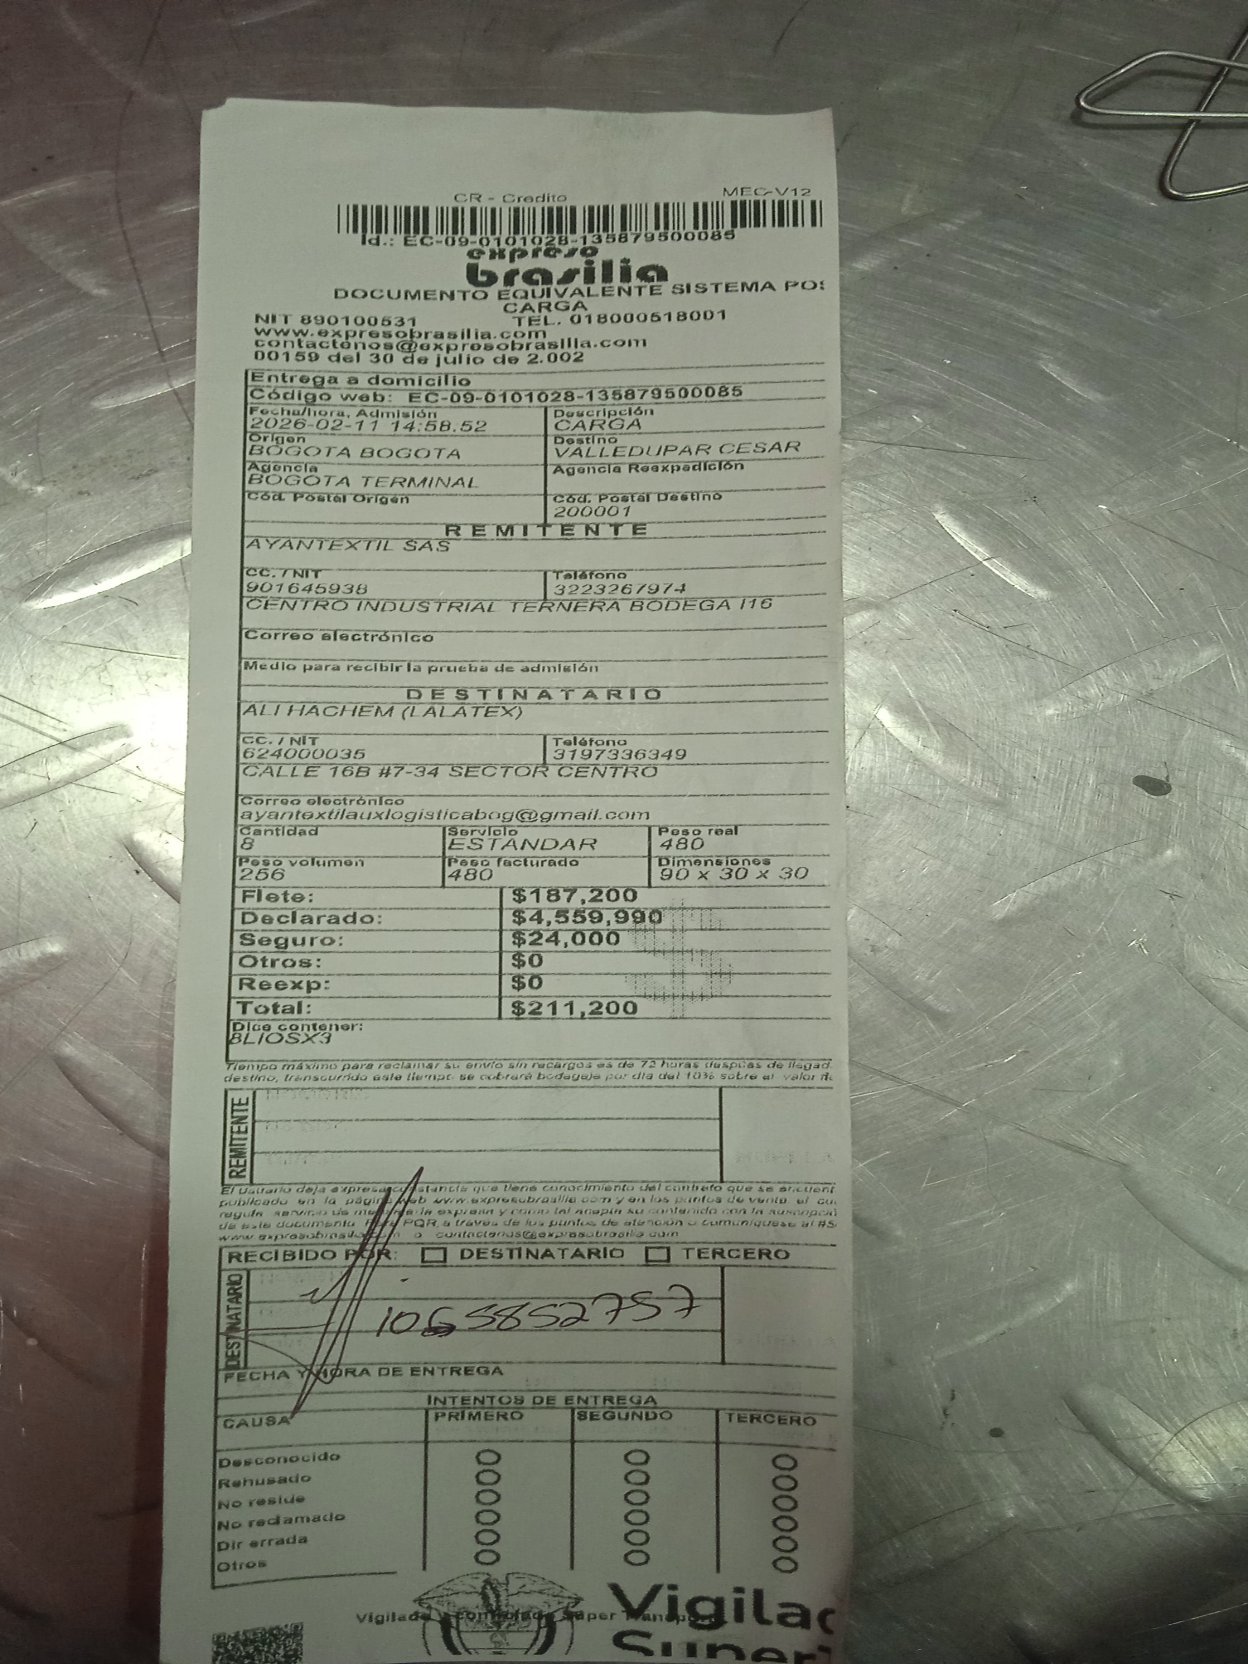 CR - Credito MEC-V12
Id.: EC-09-0101028-135879500085
expreso
brasilia
DOCUMENTO EQUIVALENTE SISTEMA POS
CARGA
NIT 890100531 TEL. 018000518001
www.expresobrasilia.com
contactenos@expresobrasilia.com
00159 del 30 de julio de 2.002
Entrega a domicilio
Código web: EC-09-0101028-135879500085
Fecha/hora, Admisión Descripción
2026-02-11 14:58.52 CARGA
Origen Destino
BOGOTA BOGOTA VALLEDUPAR CESAR
Agencia Agencia Reexpedición
BOGOTA TERMINAL
Cód. Postal Origen Cód. Postal Destino
200001
REMITENTE
AYANTEXTIL SAS
CC. / NIT Teléfono
901645938 3223267974
CENTRO INDUSTRIAL TERNERA BODEGA I16
Correo electrónico
Medio para recibir la prueba de admisión
DESTINATARIO
ALI HACHEM (LALATEX)
CC. / NIT Teléfono
624000035 3197336349
CALLE 16B #7-34 SECTOR CENTRO
Correo electrónico
ayantextilauxlogisticabog@gmail.com
Cantidad Servicio Peso real
8 ESTANDAR 480
Peso volumen Peso facturado Dimensiones
256 480 90 x 30 x 30
Flete: $187,200
Declarado: $4,559,990
Seguro: $24,000
Otros: $0
Reexp: $0
Total: $211,200
Dice contener:
8LIOSX3
Tiempo máximo para reclamar su envío sin recargos es de 72 horas después de llegad
destino, transcurrido este tiempo se cobrará bodegaje por día del 10% sobre el valor
REMITENTE
El usuario deja expresa constancia que tiene conocimiento del contrato que se encuent
publicado en la página web www.expresobrasilia.com y en los puntos de venta, el
regula servicio de mensajería expresa y como tal acepta su contenido con la
de este documento. Para PQR a través de los puntos de atención o comuníquese al
www.expresobrasilia.com o contactenos@expresobrasilia.com
RECIBIDO POR: DESTINATARIO TERCERO
DESTINATARIO
1065852757
FECHA Y HORA DE ENTREGA
INTENTOS DE ENTREGA
CAUSA PRIMERO SEGUNDO TERCERO
Desconocido
Rehusado
No reside
No reclamado
Dir errada
Otros
Vigilado Super
Vigilad
SuperT